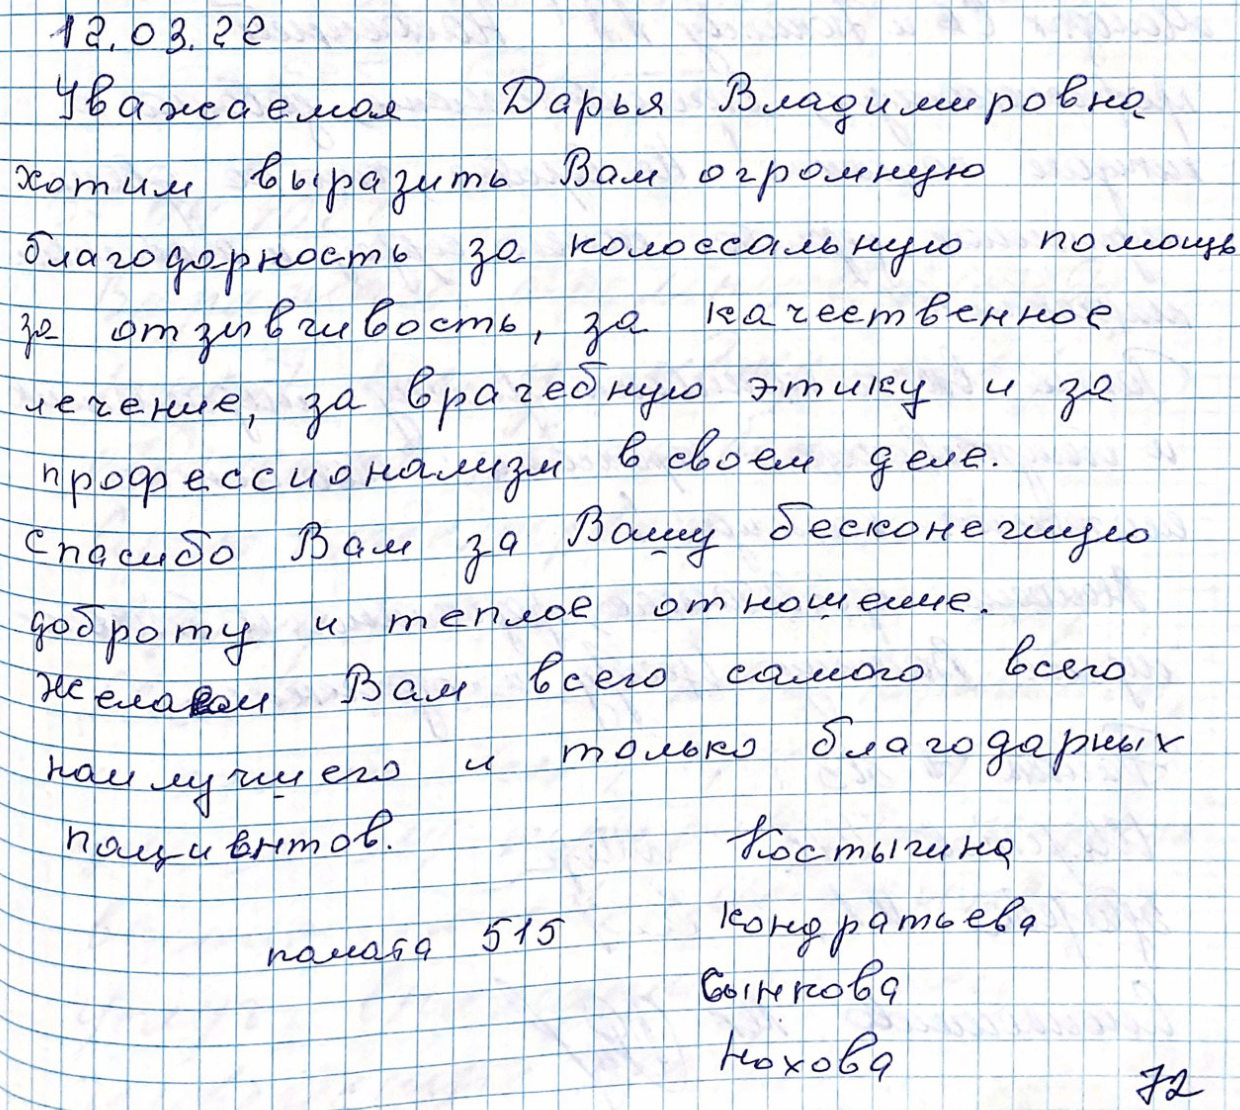 12.03.22
Уважаемая Дарья Владимировна
хотим выразить Вам огромную
благодарность за колоссальную помощь
за отзывчивость, за качественное
лечение, за врачебную этику и за
профессионализм в своем деле.
Спасибо Вам за Вашу бесконечную
доброту и теплое отношение.
Желаем Вам всего самого всего
наилучшего и только благодарных
пациентов.
Костыгина
палата 515 Кондратьева
Сынкова
Нохова
72